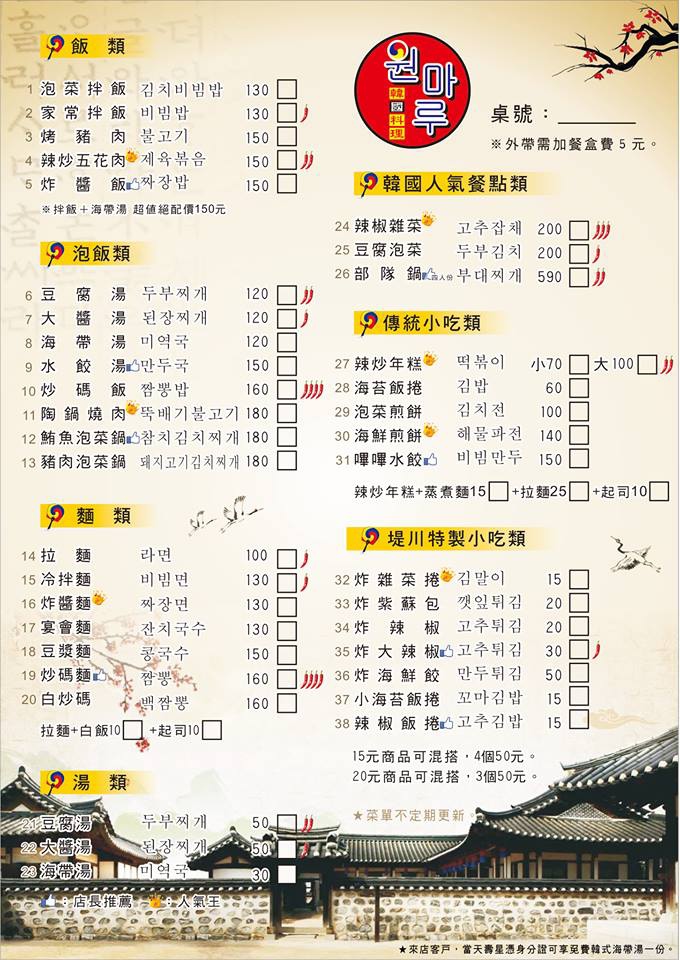 飯 類
1 泡菜拌飯 김치비빔밥 130
2 家常拌飯 비빔밥 130
3 烤豬肉 불고기 150
4 辣炒五花肉 제육볶음 150
5 炸醬飯 짜장밥 150
※拌飯+海帶湯 超值絕配價150元
泡飯類
6 豆腐湯 두부찌개 120
7 大醬湯 된장찌개 120
8 海帶湯 미역국 120
9 水餃湯 만두국 150
10 炒碼飯 짬뽕밥 160
11 陶鍋燒肉 뚝배기불고기 180
12 鮪魚泡菜鍋 참치김치찌개 180
13 豬肉泡菜鍋 돼지고기김치찌개 180
麵 類
14 拉麵 라면 100
15 冷拌麵 비빔면 130
16 炸醬麵 짜장면 130
17 宴會麵 잔치국수 130
18 豆漿麵 콩국수 150
19 炒碼麵 짬뽕 160
20 白炒碼 백짬뽕 160
拉麵+白飯10 +起司10
湯 類
21 豆腐湯 두부찌개 50
22 大醬湯 된장찌개 50
23 海帶湯 미역국 30
:店長推薦 :人氣王
원마루
韓國料理
桌號:
※外帶需加餐盒費 5 元。
韓國人氣餐點類
24 辣椒雜菜 고추잡채 200
25 豆腐泡菜 두부김치 200
26 部隊鍋 四人份 부대찌개 590
傳統小吃類
27 辣炒年糕 떡볶이 小70 大100
28 海苔飯捲 김밥 60
29 泡菜煎餅 김치전 100
30 海鮮煎餅 해물파전 140
31 嗶嗶水餃 비빔만두 150
辣炒年糕+蒸煮麵15 +拉麵25 +起司10
堤川特製小吃類
32 炸雜菜捲 김말이 15
33 炸紫蘇包 깻잎튀김 20
34 炸辣椒 고추튀김 20
35 炸大辣椒 고추튀김 30
36 炸海鮮餃 만두튀김 50
37 小海苔飯捲 꼬마김밥 15
38 辣椒飯捲 고추김밥 15
15元商品可混搭,4個50元。
20元商品可混搭,3個50元。
★菜單不定期更新。
★來店客戶,當天壽星憑身分證可享免費韓式海帶湯一份。